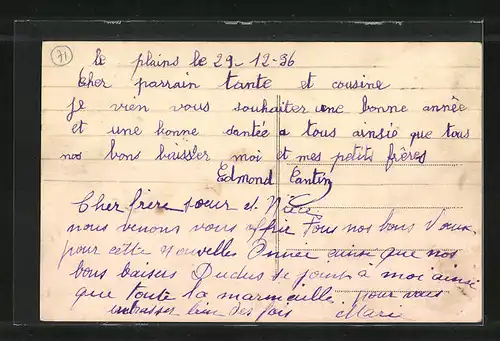 71
le plains le 29-12-36
Cher parrain tante et cousine
Je vien vous souhaiter une bonne année
et une bonne santée a tous ainsie que tous
nos bons baisser moi et mes petits frères
Edmond Cantin
Cher frère sœur et Nièce
nous venons vous offrie Tous nos bons Vœux
pour cette Nouvelles Année ainsi que nos
bons baisers Dudus se joint à moi ainsi
que toute la marmaille pour vous
embrasser bien des fois Marie